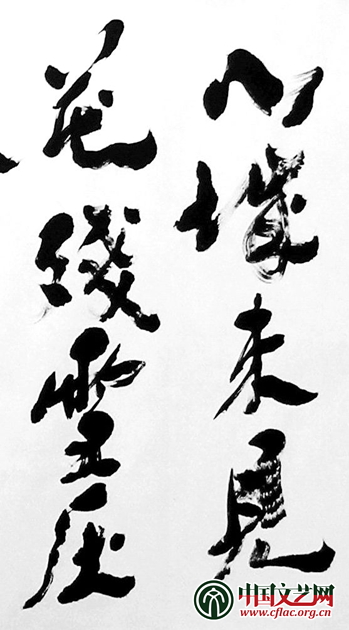 山城未見
花殘雪压
中国文艺网
www.cflac.org.cn